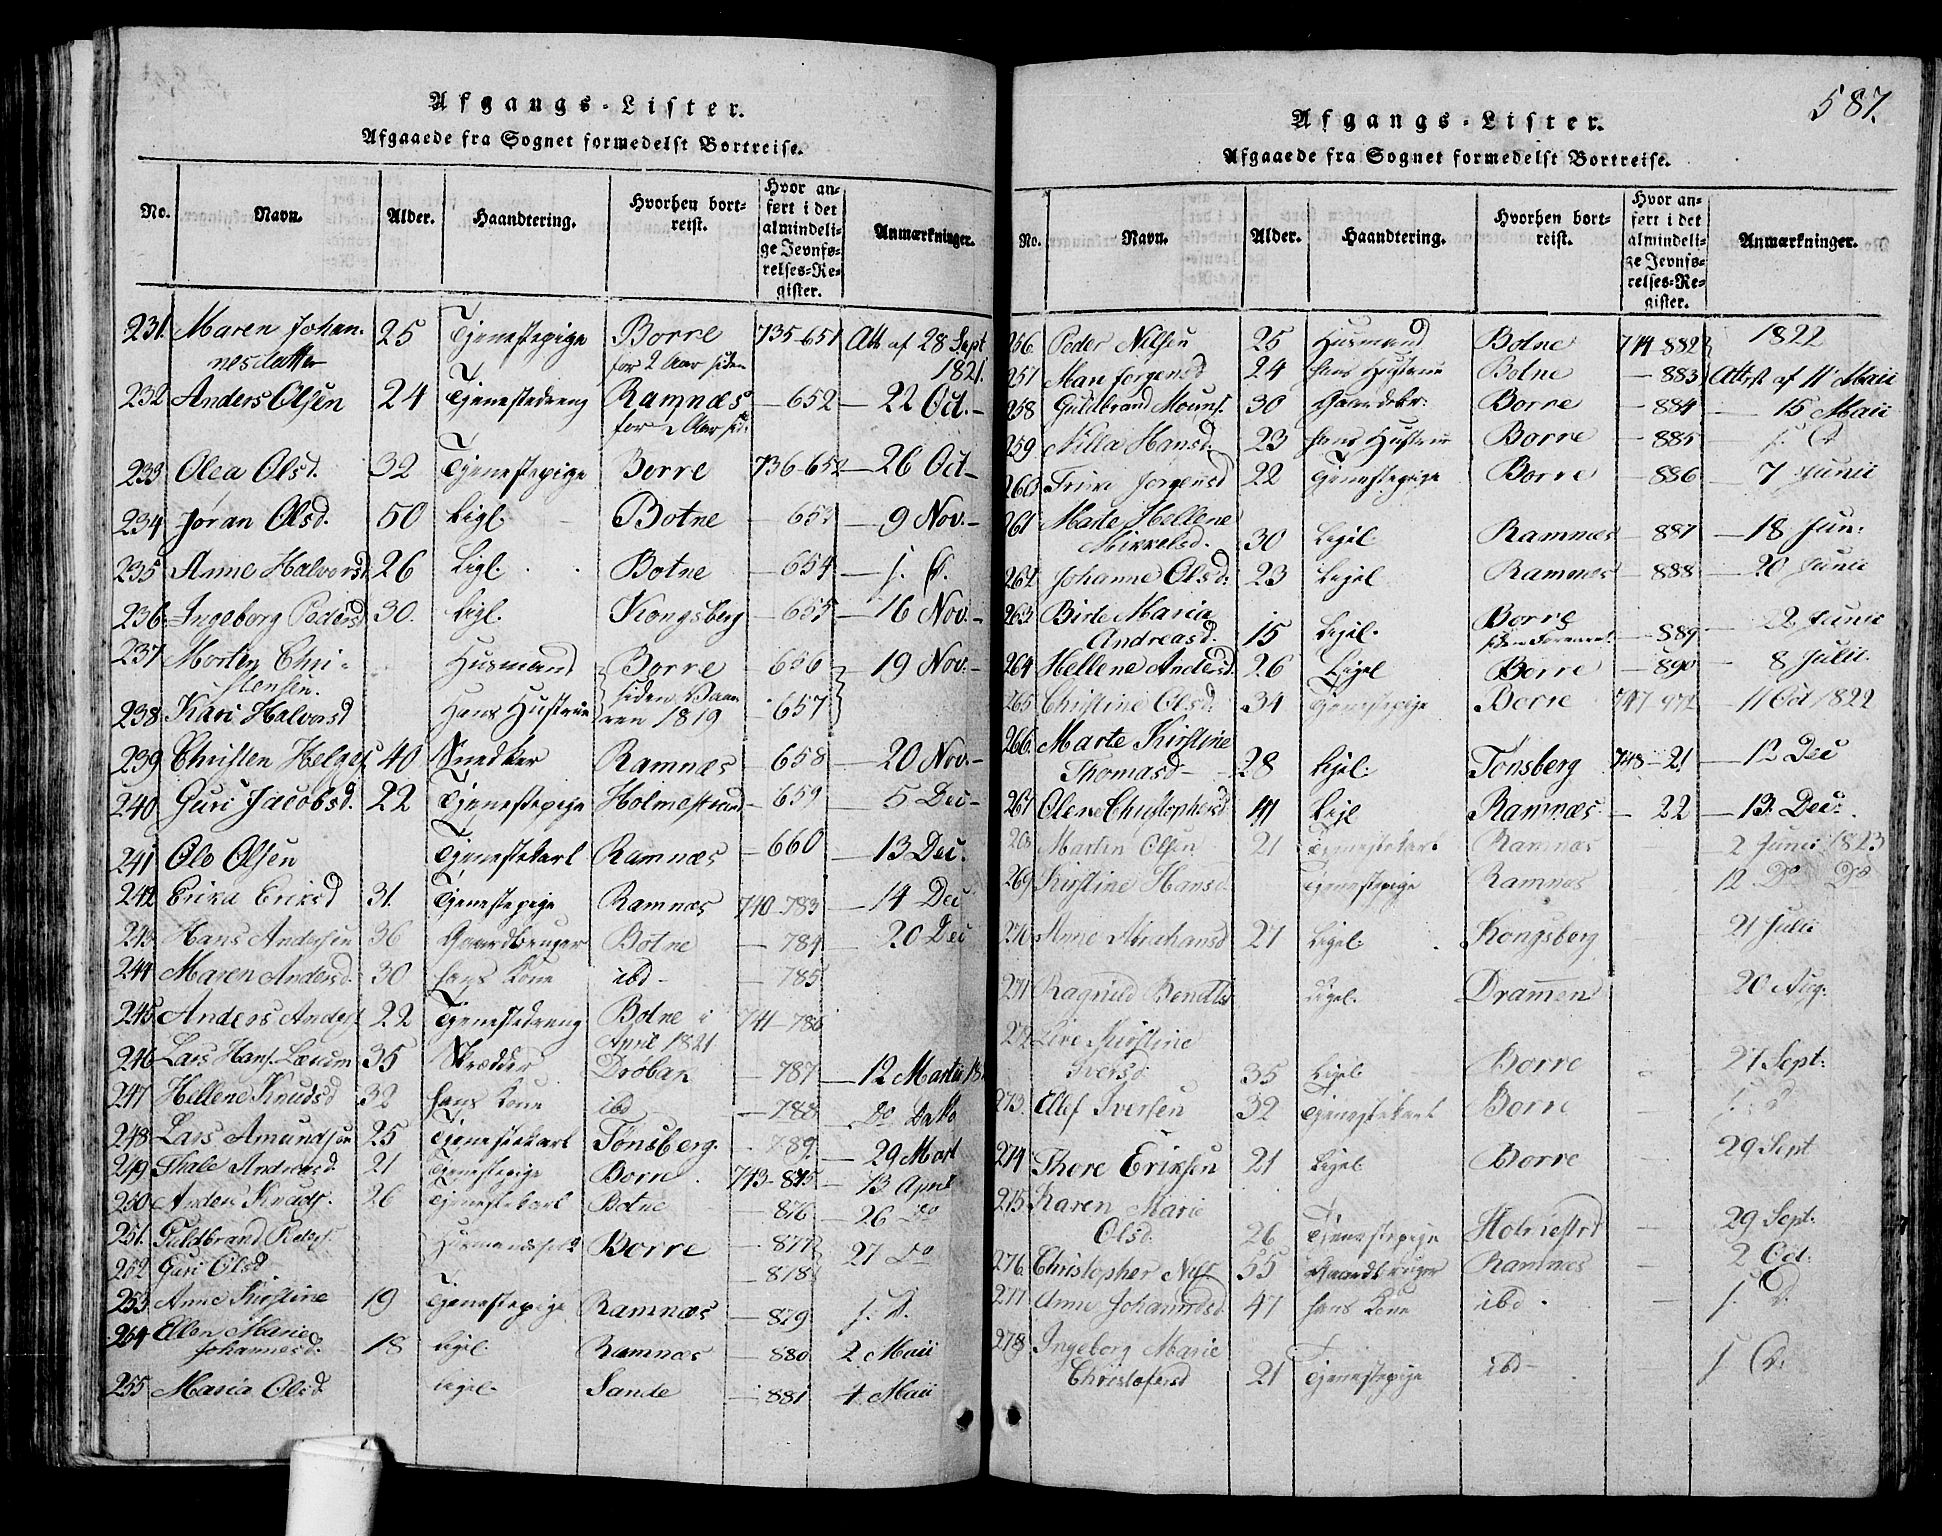 Afgangs-Lister.
Afgaaede fra Sognet formedelst Bortreise.
No. Navn. Alder. Haandtering. Hvorhen bortreist. Hvor anført i det almindelige Jevnførelses-Register. Anmærkninger.
231. Maren Johannesdatter 25 Tjenestepige Borre for 2 Aar siden 735-651 Att. af 28 Sept 1821.
232 Anders Olsen 24 Tjenestedreng Ramnæs for 2 Aar sid. — 652 — 22 Oct. -
233 Olea Olsd. 32 Tjenestepige Borre 736-652 — 26 Oct -
234 Jøran Olsd. 50 Ligl. Botne — 653 — 9 Nov. -
235 Anne Halvorsd 26 Ligl. Botne — 654 — f. D.
236 Ingeborg Pedersd 30. Ligl. Kongsberg — 655 — 16 Nov. -
237 Morten Christensen. Husmand Borre — 656 — 19 Nov. -
238 Kari Halvorsd Hans Hustrue siden Vaaren 1819 — 657
239 Christen Helges 40 Snedker Ramnæs — 658 — 20 Nov. -
240 Guri Jacobsd. 22 Tjenestepige Holmestrand — 659 — 5 Dec -
241 Ole Olsen Tjenestekarl Ramnæs — 660 — 13 Dec.
242 Erika Eriksd 31. Tjenestepige Ramnæs 740-783 — 14 Dec
243 Hans Andersen 36 Gaardbruger Botne — 784 — 20 Dec
244 Maren Andersd. 30 hans Kone ibd - — 785
245 Anders Anders 22 Tjenestedreng Botne i April 1821 741-786
246 Lars Hans. 35 Skrædder Drøbak — 787 — 12 Martii 18
247 Hellene Knudsd 32 hans Kone ibd — 788 Do Dato
248 Lars Amundsen 25 Tjenestekarl Tønsberg. 789 — 29 Mart
249 Thale Andreasd. 21 Tjenestepige Borre 743-875 — 13 April
250 Anders Knuds. 26 Tjenestekarl Botne — 876 — 26 Do
251. Guldbrand Husmandsfolk Borre — 877 27 Do
252 Guri Olsd — 878
253 Anne Kirstine 19 Tjenestepige Ramnæs — 879 f. D.
254 Ellen Marie Johannesd. 18 Ligel. Ramnæs — 880 2 Maii
255 Maria Olsd. Ligel. Sande — 881 4 Maii
587.
Afgangs-Lister.
Afgaaede fra Sognet formedelst Bortreise.
No. Navn. Alder. Haandtering. Hvorhen bortreist. Hvor anført i det almindelige Jevnførelses-Register. Anmærkninger.
256 Peder Nilsen 25 Husmand Botne 744-882 1822
257 Mari Jørgensd 24 hans Hustrue Botne — 883 Attest af 11 Maii
258 Guldbrand Mouns. 30 Gaardbr. Borre — 884 — 15 Maii
259 Nilla Hansd. 23 hans Hustrue Borre — 885 f. D
260 Trine Jørgensd 22 Tjenestepige Borre — 886 — 7 Junii
261 Marte Hellene Mikkelsd. 30 Ligel. Ramnæs — 887 — 18 Jun:
262 Johanne Olsd. 23 Ligel. Ramnæs — 888 — 20 Junii
263 Birte Maria Andreasd. 15 Ligel. Borre — 889 — 22 Junii
264 Hellene Andersd 26 Ligel Borre — 890 — 8 Julii.
265 Christine Olsd. 34 Tjenestepige Borre 747-972 — 11 Oct 1822
266. Marte Kirstine Thomasd - 28 Ligel. Tønsberg 748-21 — 12 Dec
267 Olene Christophersd 41 Ligel Ramnæs — 22 — 13 Dec:
268 Martin Olsen 21 Tjenestekarl Ramnæs 2 Junii 1823
269 Kirstine Hansd. Tjenestepige Ramnæs 12 Do Do
270 Anne Abrahamsd 27 Ligel. Kongsberg 21 Julii
271 Ragnild Bendts Ligel. Dramen 20 Aug.
272 Live Kirstine Iversd 35 Ligel. Borre 27 Sept:
273. Ellef Iversen 32 Tjenestekarl Borre f. d
274 Thore Eriksen 21 Ligel Borre 29 Sept
275 Karen Marie Olsd. 26 Tjenestepige Holmestrd — 29 Sept.
276. Christopher Nils. 55 Gaardbruger Ramnæs — 2 Oct.
277 Anne Johannesd. 47 hans Kone ibd. — f. D.
278 Ingeborg Marie Christofersd 21 Tjenestepige ibd - f D.